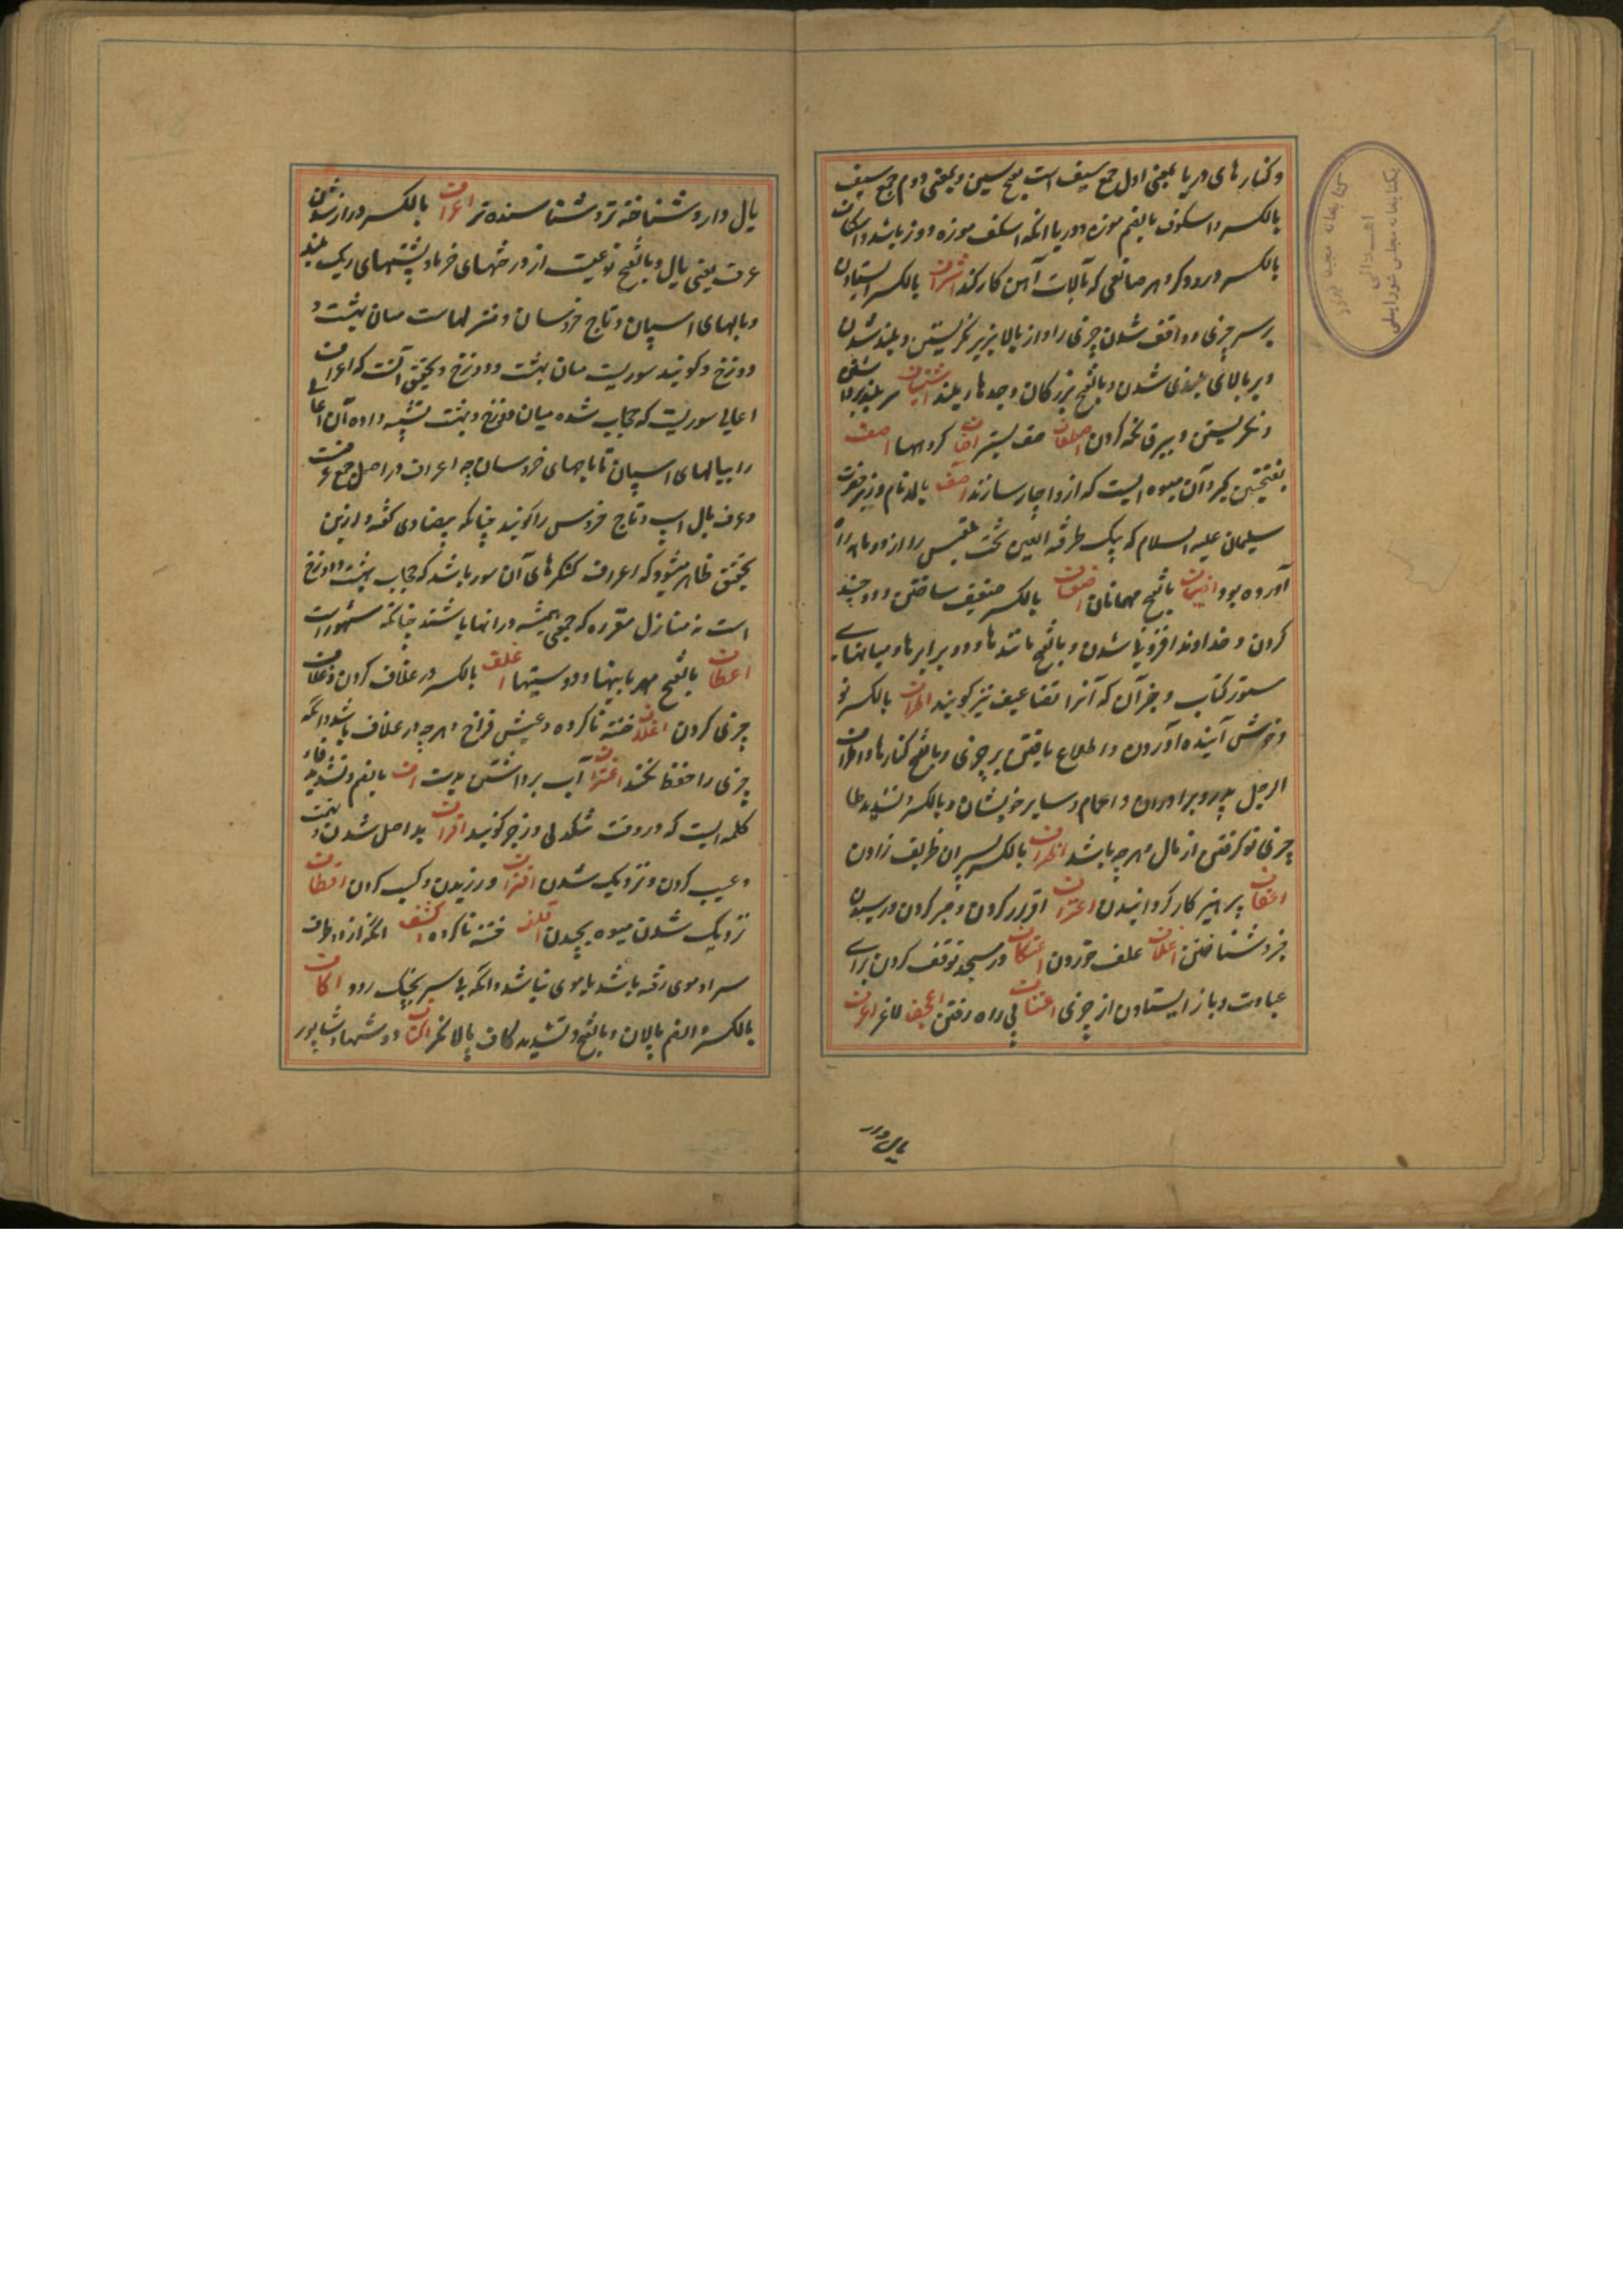 و کنارهای دریا بمعنی اول جمع سیف است بفتح سین و بمعنی دوم جمع سیف
بالکسر و اسکوف بالضم موزه دوز یا آنکه اسکف موزه دوز باشد و اسکاف
بالکسر درودکر و هر صانعی که بآلات آهن کار کند اشراف بالکسر ایستادن
بر سر چیزی و واقف شدن چیزی را و از بالا بزیر نکریستن و بلند شدن
و بر بالای بلندی شدن و بالفتح بزرکان و جدها و بلند اشتیاف سر بلند برداشتن
و نکریستن و بیرقانکه کردن اصطفاف صف بستن کروهها اصف
بفتحتین کبر و آن میوه ایست که ازو اچار سازند آصف بالمد نام وزیر حضرت
سلیمان علیه السلام که بیک طرفة العین تخت بلقیس را از دو ماهه راه
آورده بود اضیاف بالفتح مهمانان اضعاف بالکسر ضعیف ساختن و دو چند
کردن و خداوند افزونیها شدن و بالفتح مانندها و دو برابرها و میانهای
سطور کتاب و جز آن که آنرا تضاعیف نیز کویند اطراف بالکسر نو
و خوش آینده آوردن و اطلاع یافتن بر چیزی و بالفتح کنارها و اطراف
الرجل پدر و برادران و اعمام و سایر خویشان و بالکسر و تشدید طا
چیزی نو کرفتن از مال و هر چه باشد اظراف بالکسر پسران ظریف زادن
اعفاف پرهیز کار کردانیدن اعتراف اقرار کردن و صبر کردن و رسیدن
خود شناختن اعتلاف علف خوردن اعتکاف در مسجد توقف کردن برای
عبادت و باز ایستادن از چیزی اعتساف بی راه رفتن اعجف لاغر اعرف
یال دار و شناخته تر و شناسنده تر اعراف بالکسر دراز شدن
عرف یعنی یال و بالفتح نوعیست از درختهای خرما و پشتهای ریک بلند
و یالهای اسپان و تاج خروسان و منزلهاست میان بهشت و
دوزخ و کویند سوریست میان بهشت و دوزخ و تحقیق آنست که اعراف
اعالی سوریست که حجاب شده میان دوزخ و بهشت تشبیه داده آن اعالی
را بیالهای اسپان تا تاجهای خروسان چه اعراف در اصل جمع عرفست
و عرف یال اسپ و تاج خروس را کویند چنانکه بیضاوی کفته و ازین
تحقیق ظاهر میشود که اعراف کنکرهای آن سور باشد که حجاب بهشت و دوزخ
است نه منازل مقرره که جمعی همیشه در آنها باشند چنانکه مشهورست
اعطاف بالفتح مهربانیها و دوستیها اغلاف بالکسر در غلاف کردن و غلاف
چیزی کردن اغلف ختنه ناکرده و عیش فراخ و هر چه در غلاف باشد و آنکه
چیزی را حفظ نکند اغتراف آب برداشتن بدست اف بالضم و تشدید فاء
کلمه ایست که در وقت تنکدلی و زجر کویند اقراف بد اصل شدن و تهمت
و عیب کردن و نزدیک شدن اقتراف ورزیدن و کسب کردن اقطاف
نزدیک شدن میوه بچیدن اقلف ختنه ناکرده اکشف آنکه از دو طرف
سر او موی رفته باشد یا موی نباشد و آنکه بی سپر بجنک رود اکاف
بالکسر و الضم پالان و بالفتح و تشدید کاف پالانکر اکتاف دوشها و شاپور
یال دار